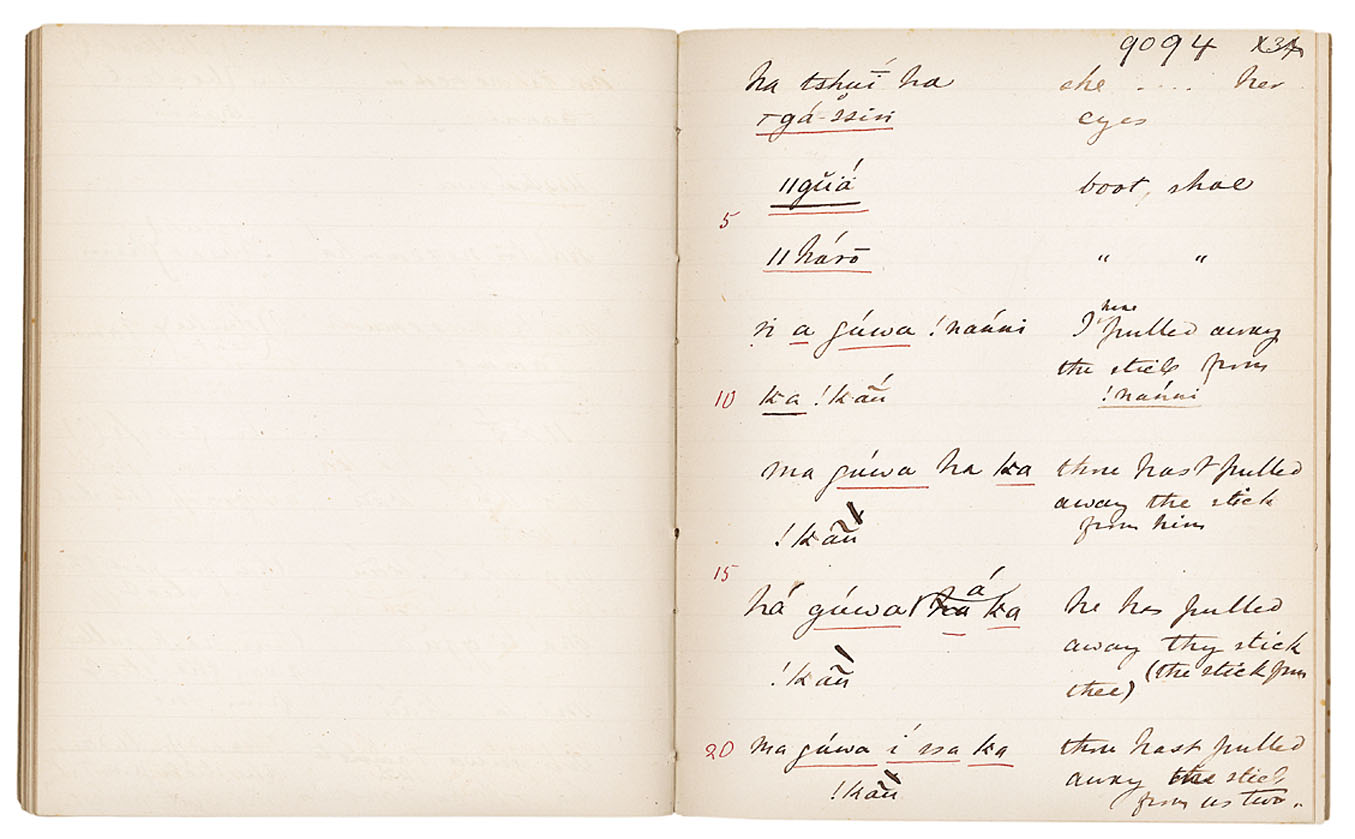 9094
ha tshuí ha she .... her
gá-ssin eyes
ǁgŭá boot, shoe
5
ǁhárō " "
si a gúwa !nańni I here pulled away
the stick from
10 ka !kãú !nańni
ma gúwa ha ka thou hast pulled
away the stick
!kãú from him
15
há gúwa á ka he has pulled
away thy stick
!kãú (the stick from
thee)
20 ma gúwa í ssa ka thou hast pulled
away the stick
!kãú from us two.